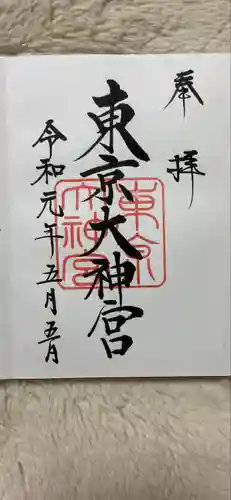 奉拝
東京大神宮
東京大神宮
令和元年五月五日